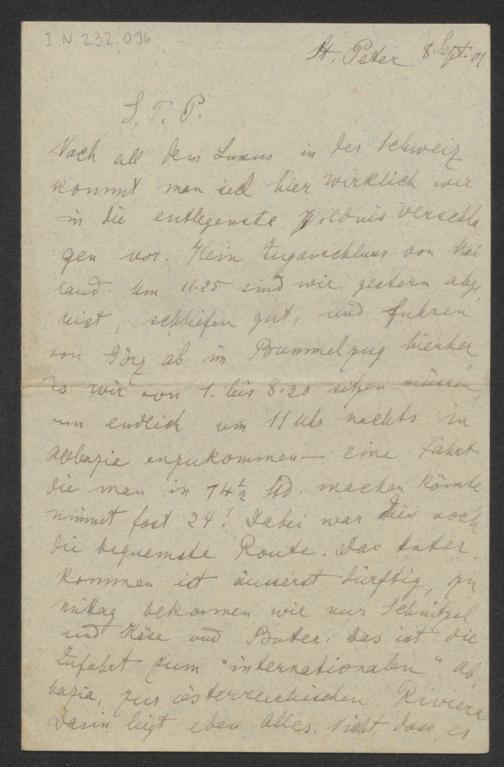 I. N. 232.096
St. Peter 8 Sept. 01
S. T. P.
Nach all dem Luxus in der Schweiz
kommt man sich hier wirklich wie
in die entlegenste Wildnis verschla
gen vor. Kein Zuganschluss von Mai
land. Um 11.25 sind wir gestern abge
reist, schliefen gut, und fuhren
von Görz ab im Bummelzug hierher
wo wir von 1. bis 8.20 sitzen müssen,
um endlich um 11 Uhr nachts in
Abbazia anzukommen — eine Fahrt
die man in 14½ Std. machen könnte
nimmt fast 24! Dabei war dies noch
die bequemste Route. Das Unter
kommen ist äusserst dürftig, zu
mittag bekommen wir nur Schnitzel
und Käse und Butter. Das ist die
Zufahrt zum "internationalen" Ab
bazia, zur österreichischen Riviera
Darin liegt eben Alles. Nicht, dass es